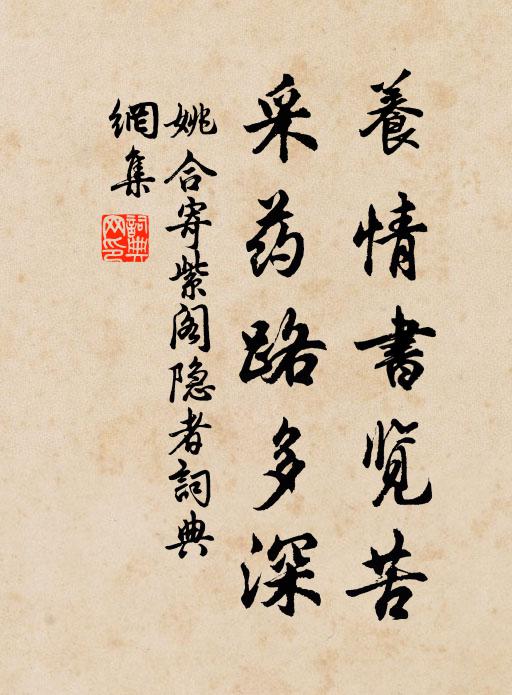 養情書览苦
采药路多深
姚合寄紫阁隐者詞典
網集
詞典网印